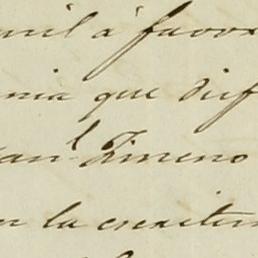 mil á favor
nia que dis
an l Fimeno
n la escritur